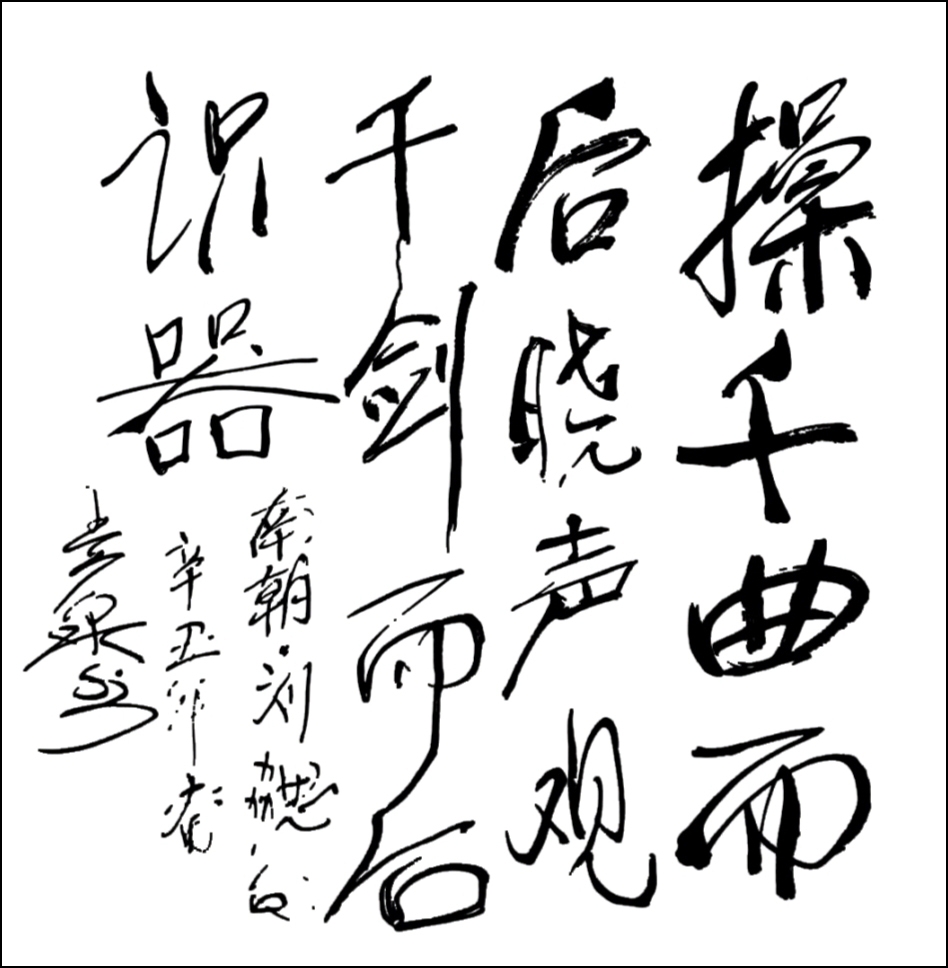 操千曲而
后晓声观
千剑而后
识器
南朝·刘勰句
辛丑